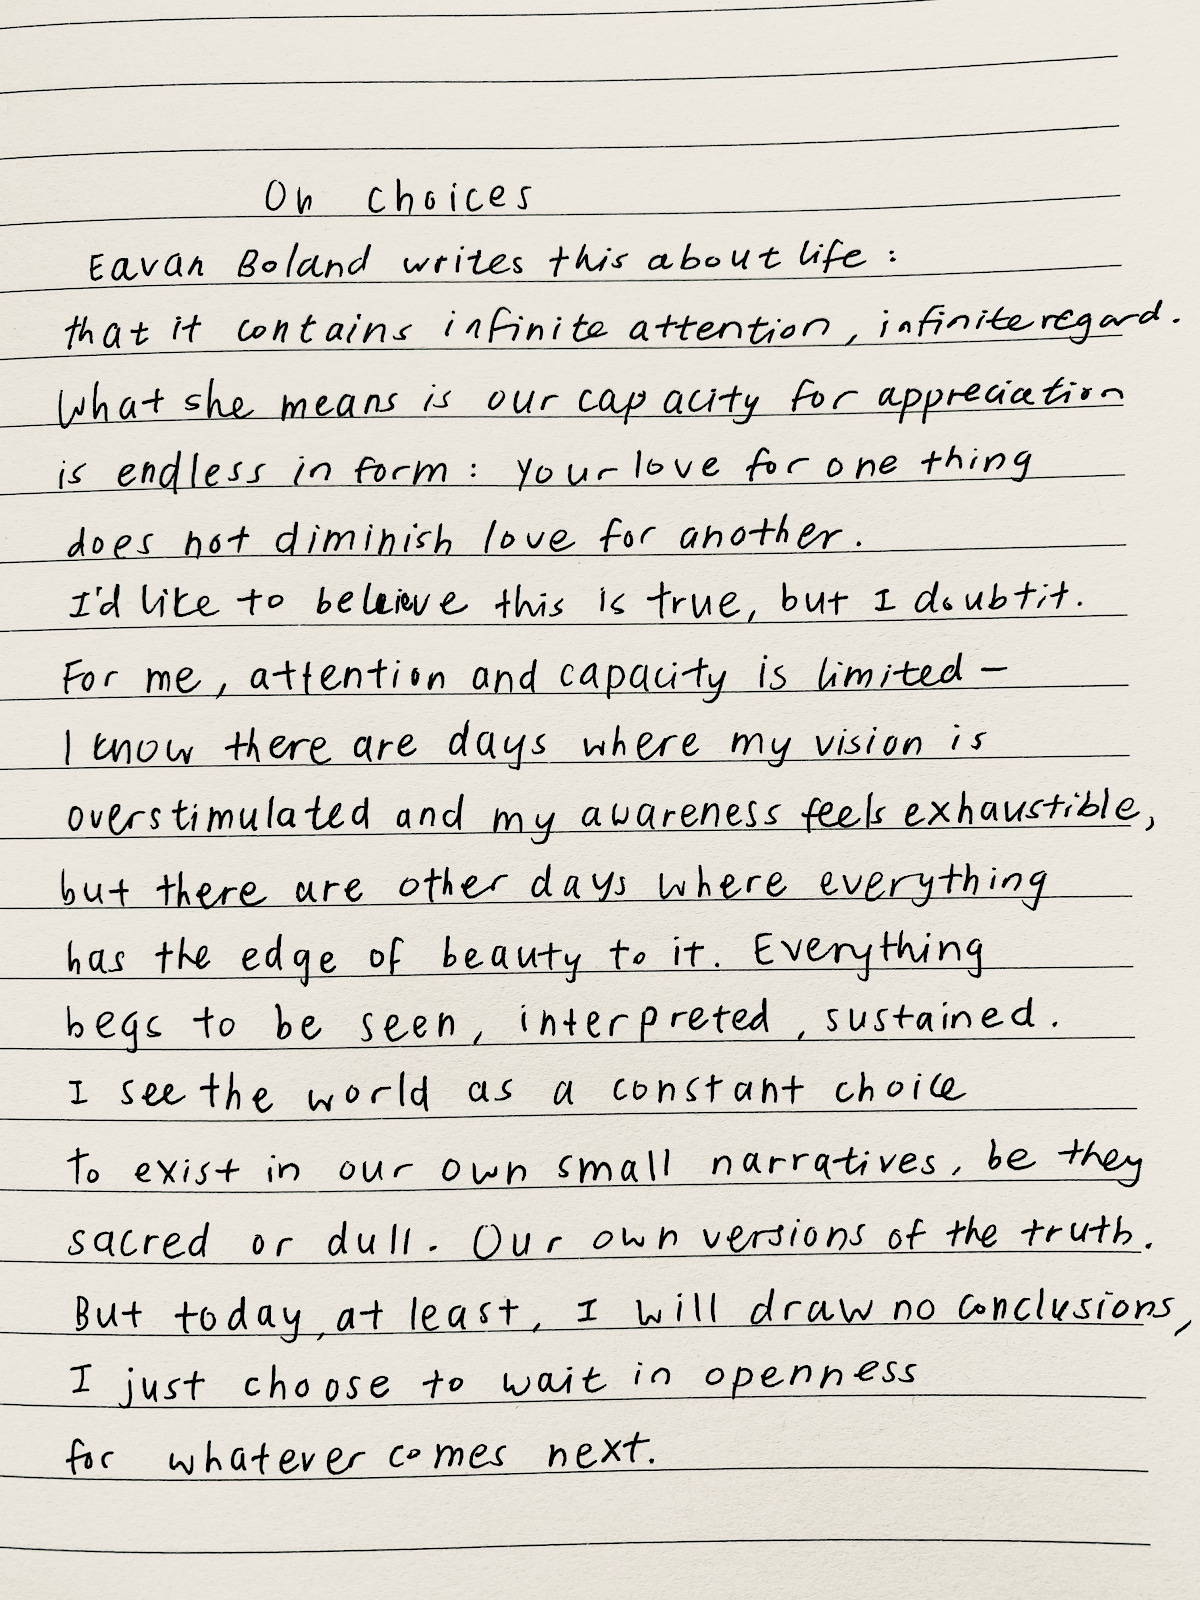 On choices
Eavan Boland writes this about life:
that it contains infinite attention, infinite regard.
What she means is our capacity for appreciation
is endless in form: your love for one thing
does not diminish love for another.
I'd like to believe this is true, but I doubt it.
For me, attention and capacity is limited –
I know there are days where my vision is
overstimulated and my awareness feels exhaustible,
but there are other days where everything
has the edge of beauty to it. Everything
begs to be seen, interpreted, sustained.
I see the world as a constant choice
to exist in our own small narratives, be they
sacred or dull. Our own versions of the truth.
But today, at least, I will draw no conclusions,
I just choose to wait in openness
for whatever comes next.